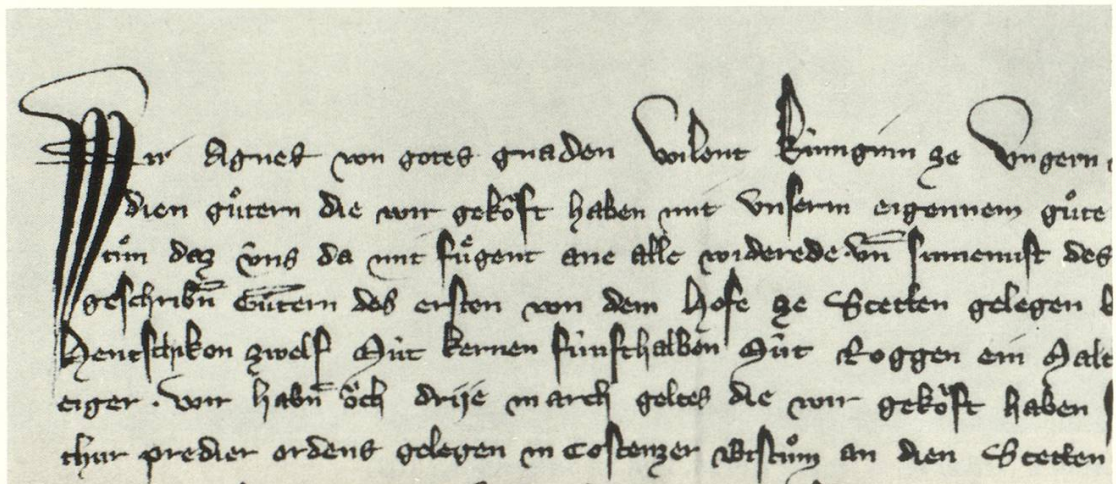 Wir Agnes von gotes gnaden Wilent Kúnigin ze Vngern
dien gůtern die wir gekoͮft haben mit Vnserm eigennem gůte
tůn daz v̂ns da mit fůgent ane alle widerede. vn̄ sunemist des
geschribn̄ Gûtern des ersten von dem Hofe ze Stetten gelegen
Hentschikon zwelf Mút kernen fúnfthalben Mút Roggen ein Malt
eiger. Wir habn̄ oͮch drije march geltes die wir gekoͮft haben
thur predier ordens gelegen in Costenzer Bistům an dien Stetten